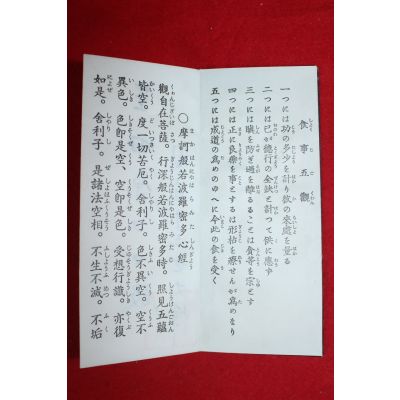 食事五觀
一つには功の多少を計り彼の來處を量る
二つには己が德行の全缺と計つて供に應ず
三つには瞋を防ぎ過を離るることは貪等を宗とす
四つには正に良藥を事とするは形枯を療ぜんが爲めなり
五つには成道の爲めのゆへに今此の食を受く
○摩訶般若波羅密多心經
觀自在菩薩。行深般若波羅密多時。照見五蘊
皆空。度一切苦厄。舍利子。色不異空。空不
異色。色即是空、空即是色。受想行識。亦復
如是。舍利子。是諸法空相。不生不滅。不垢